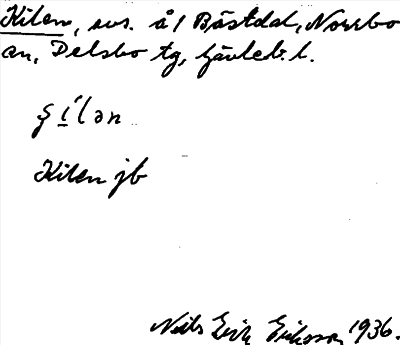 Kilen, svs. å / Bästdal, Norrbo
an, Delsbo tg, Gävleb. l.
ʂ i ́l ə n
Kilen jb
Nils Erik Eriksson 1936.